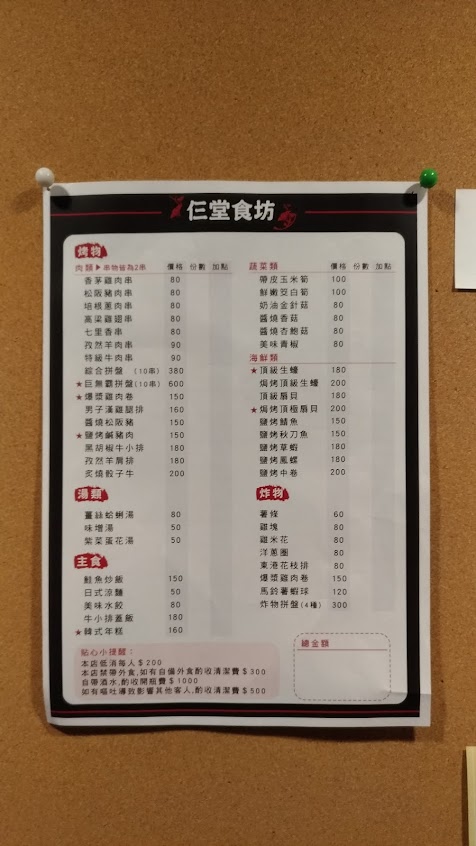 仨堂食坊
烤物
肉類▶串物皆為2串 價格 份數 加點
香茅雞肉串 80
松阪豬肉串 80
培根蔥肉串 80
高粱雞翅串 80
七里香串 80
孜然羊肉串 90
特級牛肉串 90
綜合拼盤 (10串) 380
★巨無霸拼盤(10串) 600
★爆漿雞肉卷 150
男子漢雞腿排 160
醬燒松阪豬 150
★鹽烤鹹豬肉 150
黑胡椒牛小排 180
孜然羊肩排 180
炙燒骰子牛 200
湯類
薑絲蛤蜊湯 80
味增湯 50
紫菜蛋花湯 50
主食
鮭魚炒飯 150
日式涼麵 50
美味水餃 80
牛小排蓋飯 180
★韓式年糕 160
蔬菜類 價格 份數 加點
帶皮玉米筍 100
鮮嫩茭白筍 100
奶油金針菇 80
醬燒香菇 80
醬燒杏鮑菇 80
美味青椒 80
海鮮類
★頂級生蠔 180
焗烤頂級生蠔 200
頂級扇貝 180
★焗烤頂極扇貝 200
鹽烤鯖魚 150
鹽烤秋刀魚 150
鹽烤草蝦 180
鹽烤鳳螺 180
鹽烤中卷 200
炸物
薯條 60
雞塊 80
雞米花 80
洋蔥圈 80
東港花枝排 80
爆漿雞肉卷 150
馬鈴薯蝦球 120
炸物拼盤(4種) 300
貼心小提醒:
本店低消每人$200
本店禁帶外食,如有自備外食酌收清潔費$300
自帶酒水,酌收開瓶費$1000
如有嘔吐導致影響其他客人,酌收清潔費$500
總金額